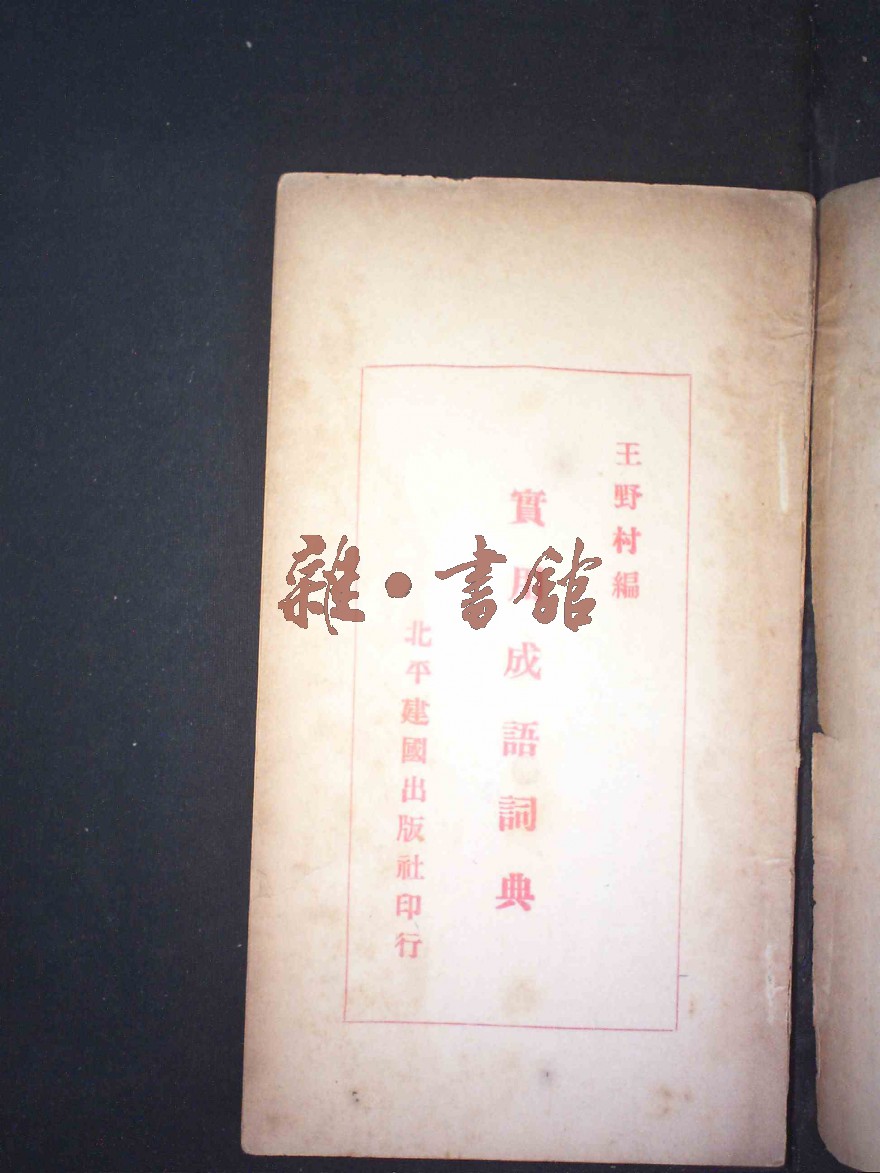 王野村編
實用成語詞典
北平建國出版社印行
雜·書館